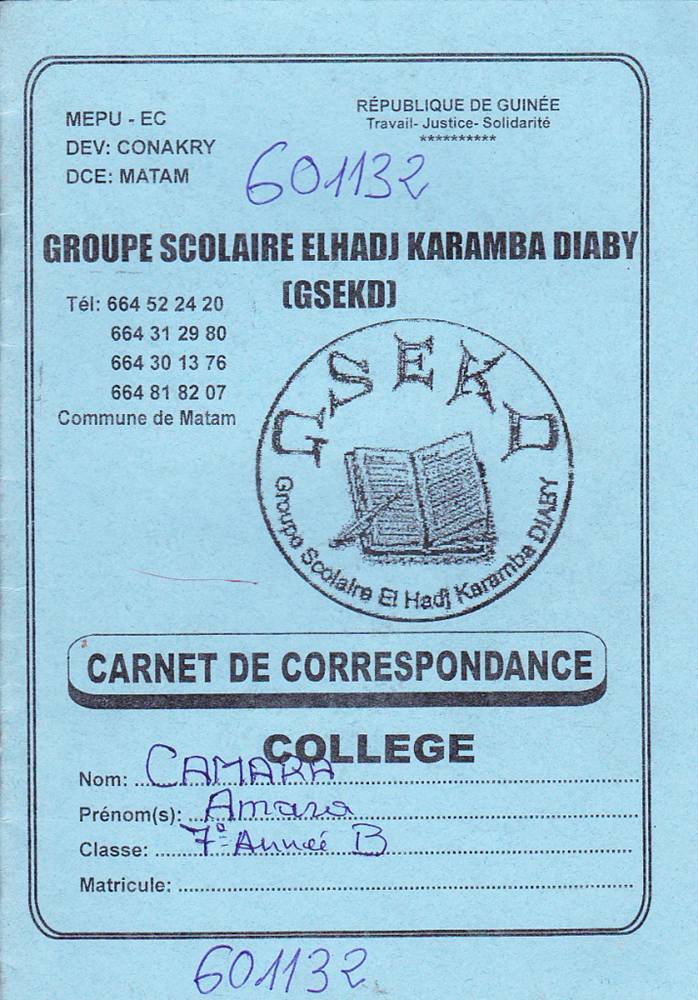 MEPU - EC
DEV: CONAKRY
DCE: MATAM
RÉPUBLIQUE DE GUINÉE
Travail- Justice- Solidarité
**********
601132
GROUPE SCOLAIRE ELHADJ KARAMBA DIABY
(GSEKD)
Tél: 664 52 24 20
664 31 29 80
664 30 13 76
664 81 82 07
Commune de Matam
GSEKD
Groupe Scolaire El Hadj Karamba DIABY
CARNET DE CORRESPONDANCE
COLLEGE
Nom: CAMARA
Prénom(s): Amara
Classe: 7e Année B
Matricule:
601132